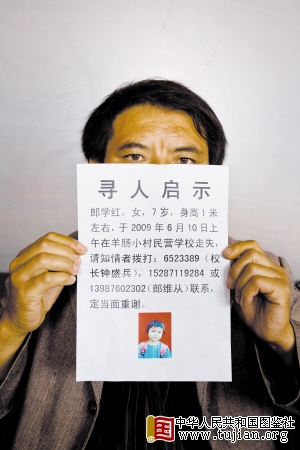 寻人启示
郎学红，女，7岁，身高1米
左右，于2009年6月10日上
午在羊肠小村民营学校走失，
请知情者拨打：6523389（校
长钟盛兵），15287119284 或
13987602302（郎维从）联系，
定当面重谢。
中华人民共和国图鉴社
www.tujian.org